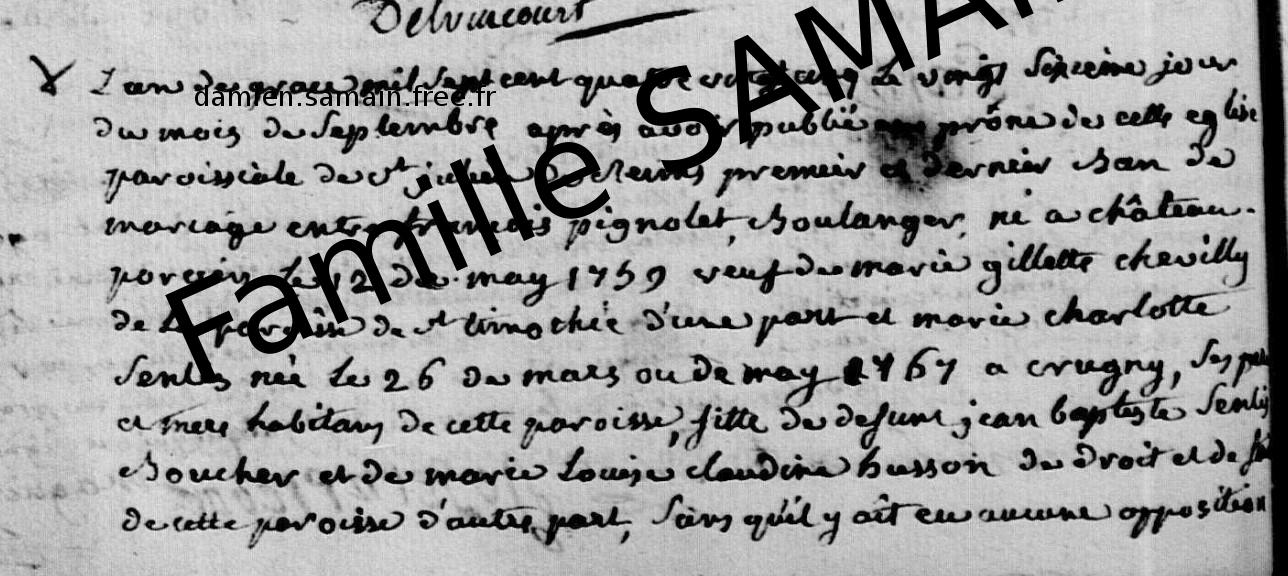 Delvincourt
L'an de grace mil sept cent quatre vingt cinq le vingt sixieme jour
du mois de Septembre après avoir publié au prône de cette eglise
paroissiale de St julien de Reims premier et dernier Ban de
mariage entre francois pignolet, Boulanger, né a château-
porcien le 12 de may 1759 veuf de marie gillette chevilly
de la paroisse de St timothée d'une part et marie charlotte
Senlis née le 26 de mars ou de may 1767 a crugny, ses pere
et mere habitans de cette paroisse, fille de defunt jean baptiste Senlis
Boucher et de marie Louise claudine husson de droit et de fait
de cette paroisse d'autre part, sans qu'il y aît eu aucune opposition
Famille SAMAIN
damien.samain.free.fr